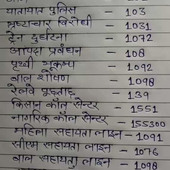 यातायात पुलिस - 103
भ्रष्टाचार विरोधी - 1031
रेल दुर्घटना - 1072
आपदा प्रबंधन - 108
पृथ्वी भूकम्प - 1092
बाल शोषण - 1098
रेलवे पूछताछ - 139
किसान कॉल सेन्टर - 1551
नागरिक कॉल सेन्टर - 155300
महिला सहायता लाइन - 1091
सीएम सहायता लाइन - 1076
बाल सहायता लाइन - 1098